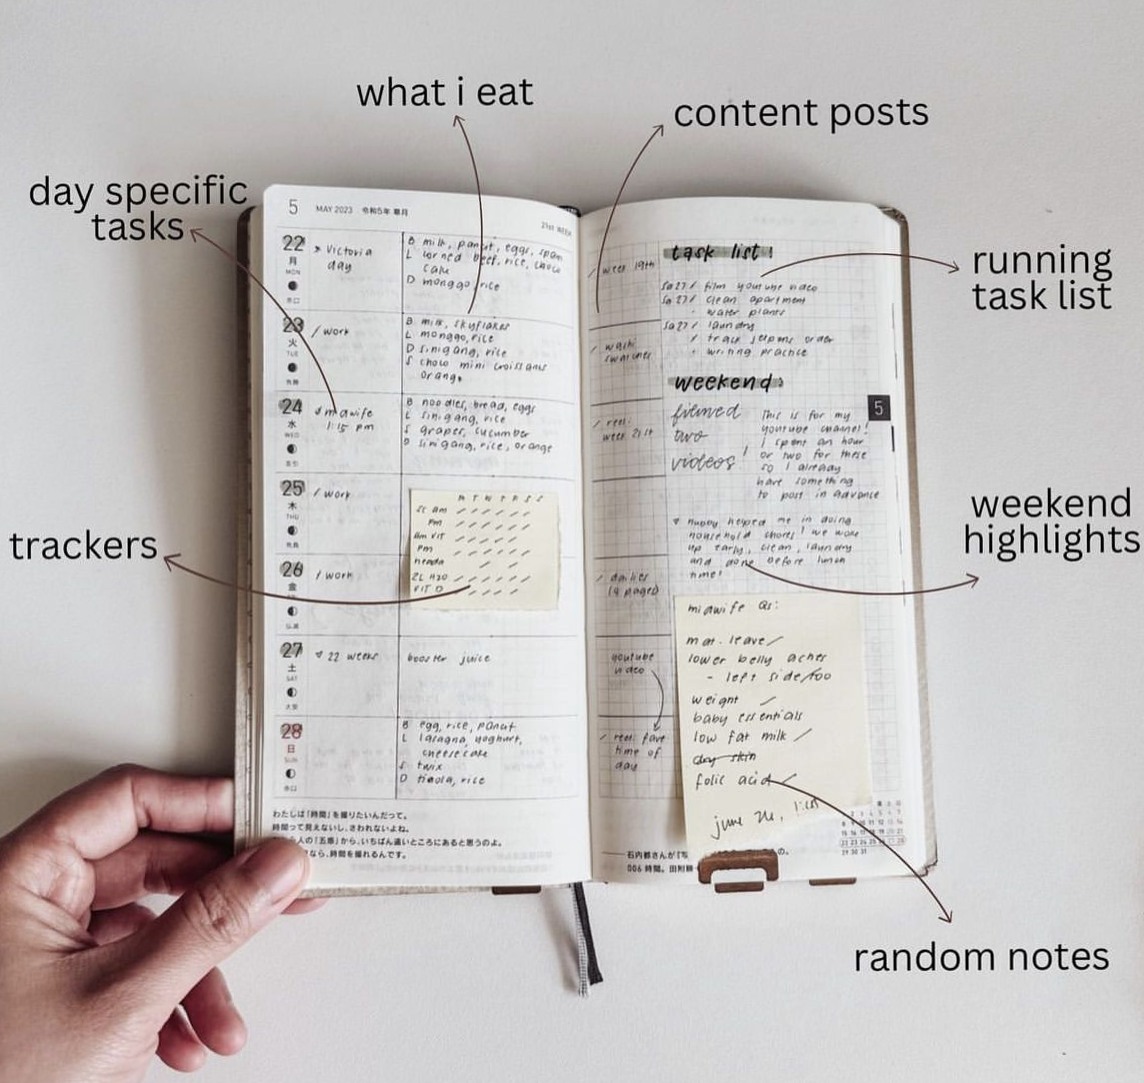 what i eat
content posts
day specific
tasks
running
task list
weekend
highlights
trackers
random notes
5 MAY 2023 令和5年 皐月
21st WEEK
22
月
MON
> Victoria
day
B milk, panut, eggs, spam
L corned beef, rice, choco
cake
D monggo, rice
23
火
TUE
/ work
B milk, skyflakes
L monggo, rice
D sinigang, rice
S choco mini croissants
orange
24
水
WED
midwife
1:15 pm
B noodles, bread, eggs
L sinigang, rice
S grapes, cucumber
D sinigang, rice, orange
25
木
THU
/ work
M T W T F S S
am
pm
am vit
pm
2L H2O
VIT D
26
金
/ work
27
土
SAT
22 weeks
booster juice
28
日
SUN
B egg, rice, panut
L lasagna, yoghurt,
cheesecake
S twix
D tinola, rice
わたしは「時間」を撮りたいんだって。
時間って見えないし、さわれないよね。
人の「五感」から、いちばん遠いところにあると思うのよ。
なら、時間を撮れるんです。
/ week 19th
/ wash
swatches
/ reel:
week 21st
/ dailies
(4 pages)
youtube
video
/ reel: fave
time of
day
task list!
Sa 27 / film youtube video
Sa 27 / clean apartment
· water plants
Sa 27 / laundry
/ track order
· writing practice
weekend:
filmed
two
videos!
This is for my
youtube channel!
I spent an hour
or two for these
so I already
have something
to post in advance
5
hubby helped me in doing
household chores! we woke
up early, clean, laundry
and done before lunch
time!
midwife as:
mat. leave /
lower belly aches
- left side/foo
weight /
baby essentials
low fat milk /
dry skin
folic acid /
june
石内都さんが『
006 時間。